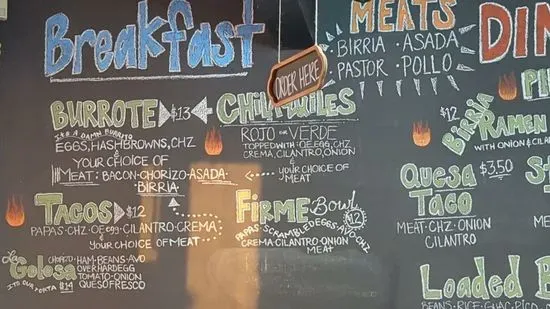 Breakfast
BURROTE $13
IT'S A DAMN BURRITO
EGGS, HASHBROWNS, CHZ
& YOUR CHOICE OF
MEAT: BACON·CHORIZO·ASADA·
BIRRIA
TACOS $12
PAPAS·CHZ·OE egg·CILANTRO·CREMA
YOUR CHOICE OF MEAT
Golosa
ITS OUR $14
CHORIZO·HAM·BEANS·AVO
OVERHARDEGG
TOMATO·ONION
QUESO FRESCO
ORDER HERE
ROJO OR VERDE
TOPPED WITH: OE.EGG, CHZ
CREMA, CILANTRO, ONION
& YOUR CHOICE OF
MEAT
FIRME Bowl
$12
PAPAS·SCRAMBLED EGGS·AVO·CHZ
CREMA·CILANTRO·ONION
MEAT
MEATS
BIRRIA·ASADA
PASTOR·POLLO
DIN
$12
BIRRIA
RAMEN
WITH ONION & CILAN
QUESA $3.50
TACO
MEAT·CHZ·ONION
CILANTRO
LOADED B
BEANS·RICE·GUAC·PICO